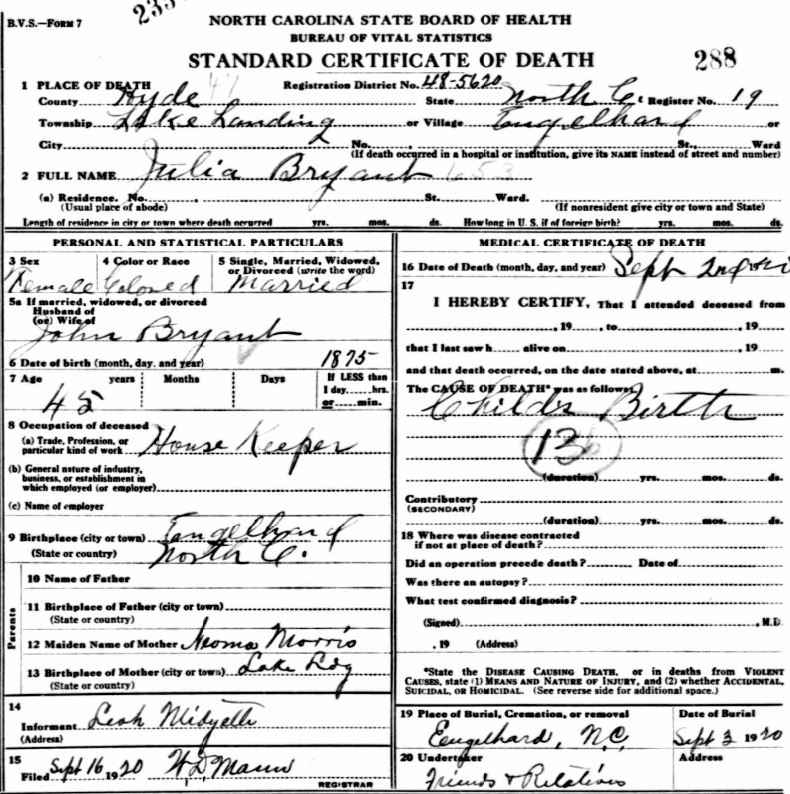 B.V.S.—FORM 7
NORTH CAROLINA STATE BOARD OF HEALTH
BUREAU OF VITAL STATISTICS
STANDARD CERTIFICATE OF DEATH
288
1 PLACE OF DEATH
Registration District No. 48-5620
County Hyde State North C. Register No. 19
Township Lake Landing or Village Engelhard or
City No. St., Ward
(If death occurred in a hospital or institution, give its NAME instead of street and number)
2 FULL NAME Julia Bryant
(a) Residence. No. St. Ward.
(Usual place of abode) (If nonresident give city or town and State)
Length of residence in city or town where death occurred yrs. mos. ds. How long in U. S. if of foreign birth? yrs. mos. ds.
PERSONAL AND STATISTICAL PARTICULARS
3 Sex 4 Color or Race 5 Single, Married, Widowed, or Divorced (write the word)
Female Colored Married
5a If married, widowed, or divorced
Husband of
(or) Wife of
John Bryant
6 Date of birth (month, day, and year) 1875
7 Age years Months Days If LESS than
1 day......hrs.
or......min.
45
8 Occupation of deceased
(a) Trade, Profession, or
particular kind of work House Keeper
(b) General nature of industry,
business, or establishment in
which employed (or employer)
(c) Name of employer
9 Birthplace (city or town) Engelhard
(State or country) North C.
Parents
10 Name of Father
11 Birthplace of Father (city or town)
(State or country)
12 Maiden Name of Mother Neoma Morris
13 Birthplace of Mother (city or town) Lake Ldg
(State or country)
14
Informant Leah Midyette
(Address)
15
Filed Sept 16 1920 W.D. Mann
REGISTRAR
MEDICAL CERTIFICATE OF DEATH
16 Date of Death (month, day, and year) Sept 2nd 1920
17
I HEREBY CERTIFY, That I attended deceased from
, 19 , to , 19
that I last saw h alive on , 19
and that death occurred, on the date stated above, at m.
The CAUSE OF DEATH* was as follows:
Childs Birth
(duration) yrs. mos. ds.
Contributory
(SECONDARY)
(duration) yrs. mos. ds.
18 Where was disease contracted
if not at place of death?
Did an operation precede death? Date of
Was there an autopsy?
What test confirmed diagnosis?
(Signed) , M.D.
, 19 (Address)
*State the DISEASE CAUSING DEATH, or in deaths from VIOLENT
CAUSES, state (1) MEANS AND NATURE OF INJURY, and (2) whether ACCIDENTAL,
SUICIDAL, OR HOMICIDAL. (See reverse side for additional space.)
19 Place of Burial, Cremation, or removal Date of Burial
Eengelhard, N.C. Sept 3 1920
20 Undertaker Address
Friends & Relatives